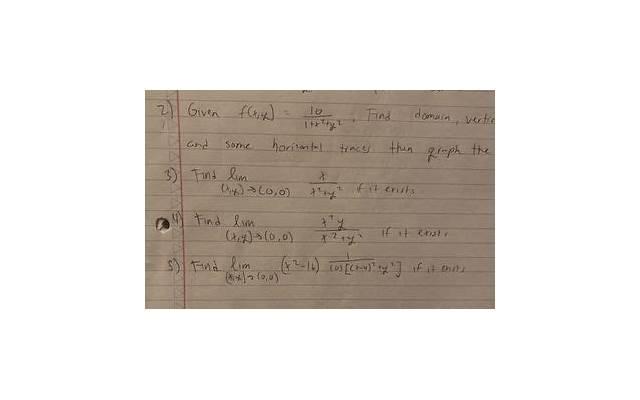 2) Given f(x,y) = 10/(1+x²+y²), Find domain, vertic
and some horizontal traces then graph the
3) Find lim (x,y)→(0,0) x/(x²+y²) if it exists
4) Find lim (x,y)→(0,0) /(x²+y²) if it exists
5) Find lim (x,y)→(0,0) (x²-16) 1/cos[(x-4)²+y²] if it exists